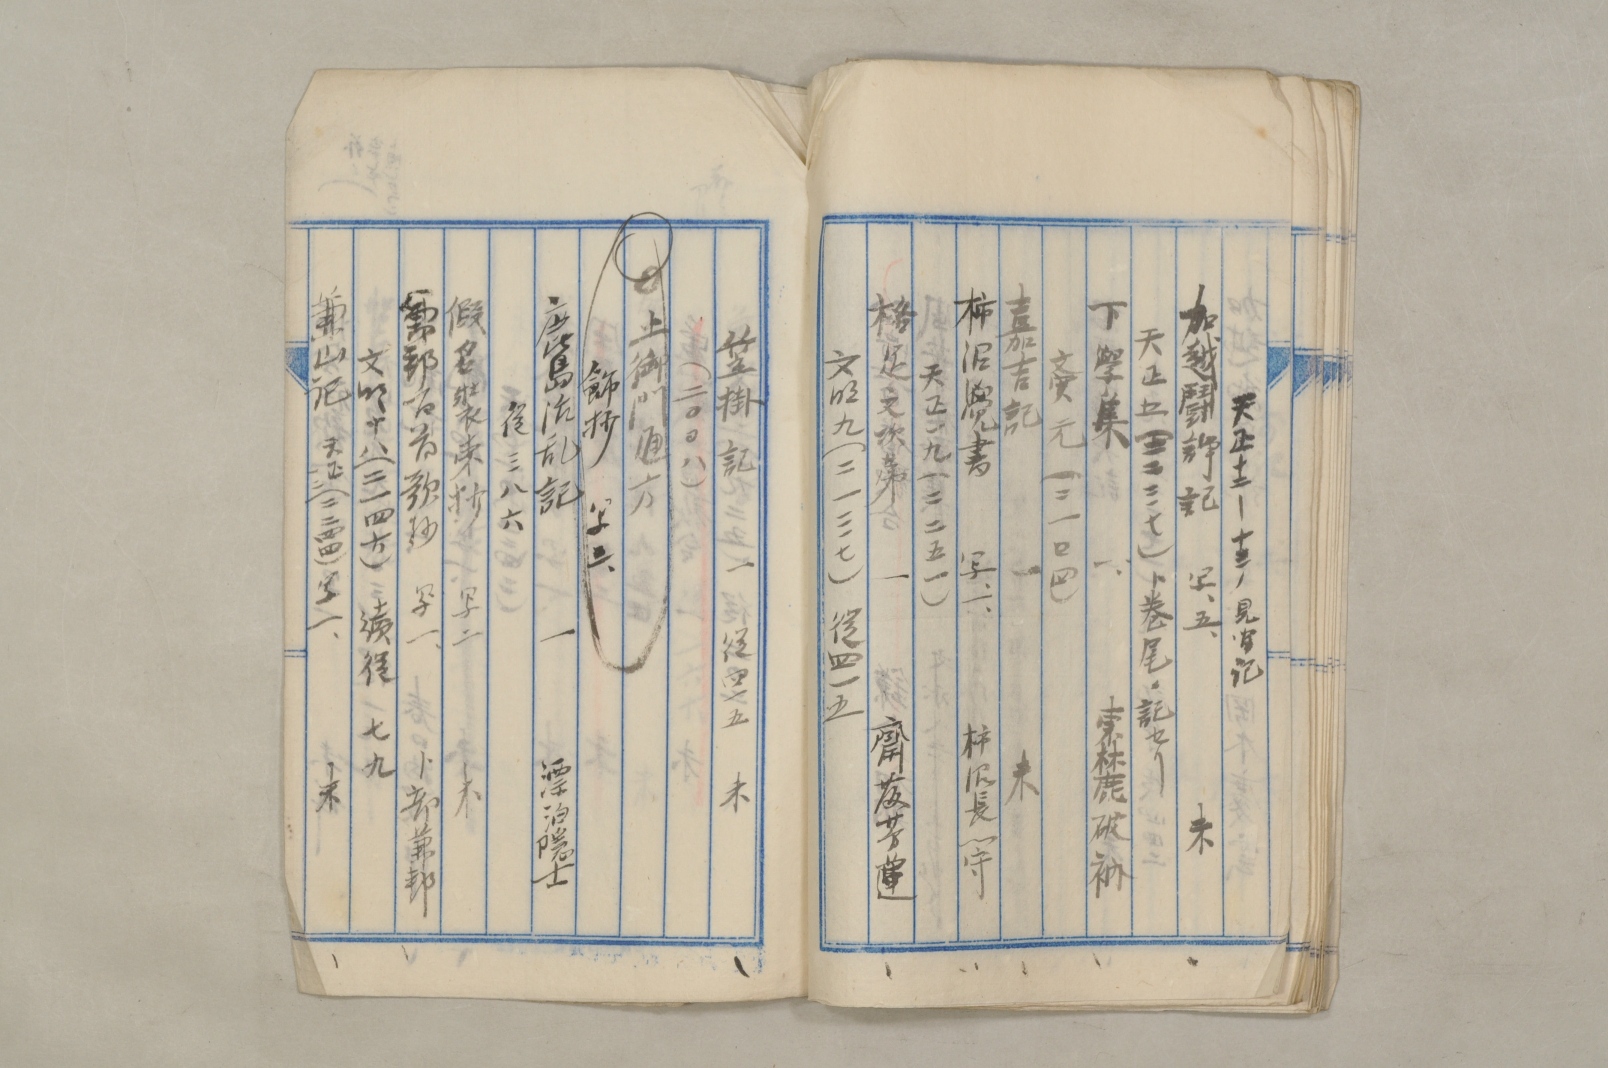 天正十一―十三ノ見聞記
加越闘諍記 写、五、 未
天正五(二二三七)ト巻尾ニ記セリ
下学集 一、 東林鹿破衲
文安元(二一〇四)
嘉吉記 一 未
柿沼覚書 写、一、 柿沼長門守
天正一九(二二五一)
格足之次第 一 齋藤芳蓮
文明九(二一三七) 従四一五
笠掛記 一 従四七五 未
(二〇〇八)
土御門通方
飾抄 写三、
鹿島治乱記 一 漂泊隠士
従三八六
假名装束抄 写二 未
兼邦百首歌抄 写一、 卜部兼邦
文明十八(二一四六) 続従一七九
兼山記 写一、 未